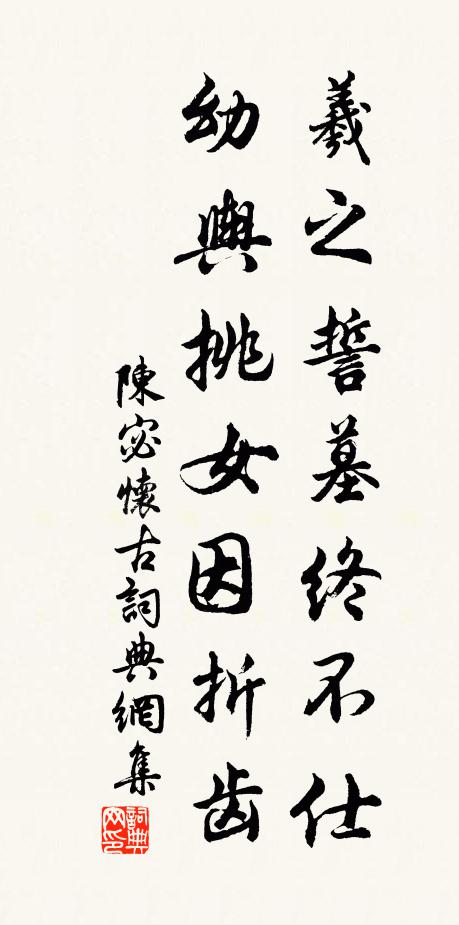 羲之誓墓終不仕
幼輿挑女因折齒
陳宓懷古詞典網集
詞典网印